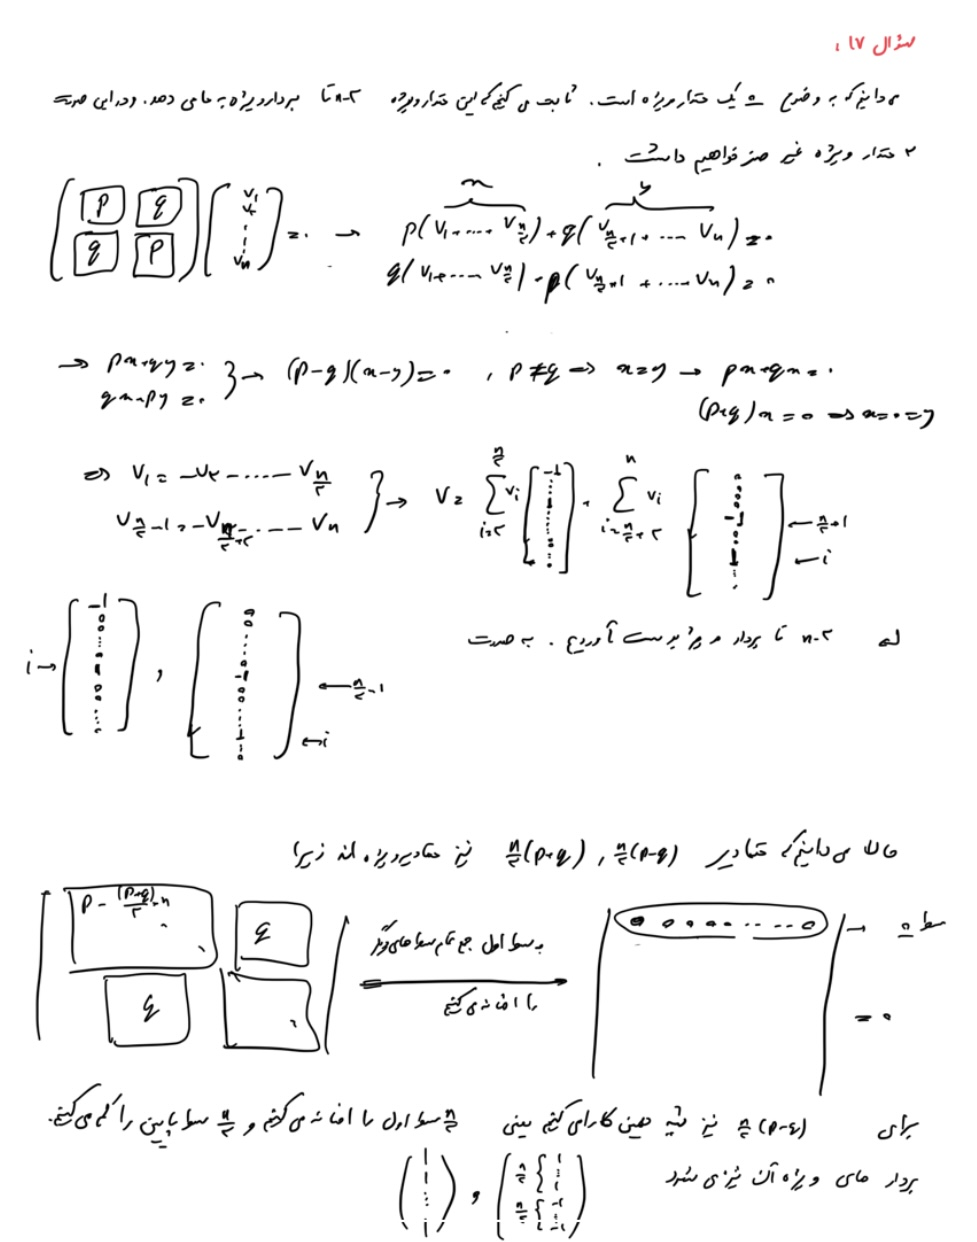 سوال ۱۷ :
می دانیم که به وضوح 0 یک مقدار ویژه است. ثابت می کنیم که این مقدار ویژه n-۲ تا بردار ویژه به ما می دهد. و در این صورت
۲ مقدار ویژه غیر صفر خواهیم داشت .
[ p q ; q p ] [ v₁ v₂ ⋮ vₙ ] = ۰ → p(v₁ + .... v_{n/۲}) + q(v_{n/۲+1} + .... vₙ) = ۰
x y
q(v₁ + .... v_{n/۲}) + p(v_{n/۲+1} + .... vₙ) = ۰
→ px + qy = ۰
qx + py = ۰ } → (p-q)(x-y) = ۰ , p ≠ q ⇒ x = y → px + qx = ۰
(p+q)x = 0 ⇒ x = ۰ = y
⇒ v₁ = -v₂ - ..... - v_{n/۲}
v_{n/۲-1} = -v_{n/۲+۲} - .... - vₙ } → v = Σ_{i=۲}^{n/۲} vᵢ [ -1 ⋮ ] + Σ_{i=n/۲+۲}^{n} vᵢ [ ⋮ ] ← n/۲+1
← i
n-۲ تا بردار ویژه بدست آوردیم . به صورت
i → [ -1 0 0 ... 0 1 0 0 ... ] , [ 0 0 ... 0 -1 0 0 ... 1 0 ] ← n/۲-1
← i
حالا می دانیم که مقادیر n/۲(p-q) , n/۲(p+q) نیز مقادیر ویژه اند زیرا
| p - (p+q)/۲ n q ; q | به سطر اول جمع تمام سطرهای دیگر را اضافه می کنیم → | 0 0 0 0 ... 0 | → سطر 0
= ۰
برای n/۲(p-q) نیز شبه همین کار را می کنیم یعنی n/۲ سطر اول را اضافه می کنیم و n/۲ سطر پایین را کم می کنیم.
بردار های ویژه آن نیز می شود ( 1 1 ⋮ 1 ) , ( n/۲ { 1 ⋮ 1 n/۲ { -1 ⋮ -1 )